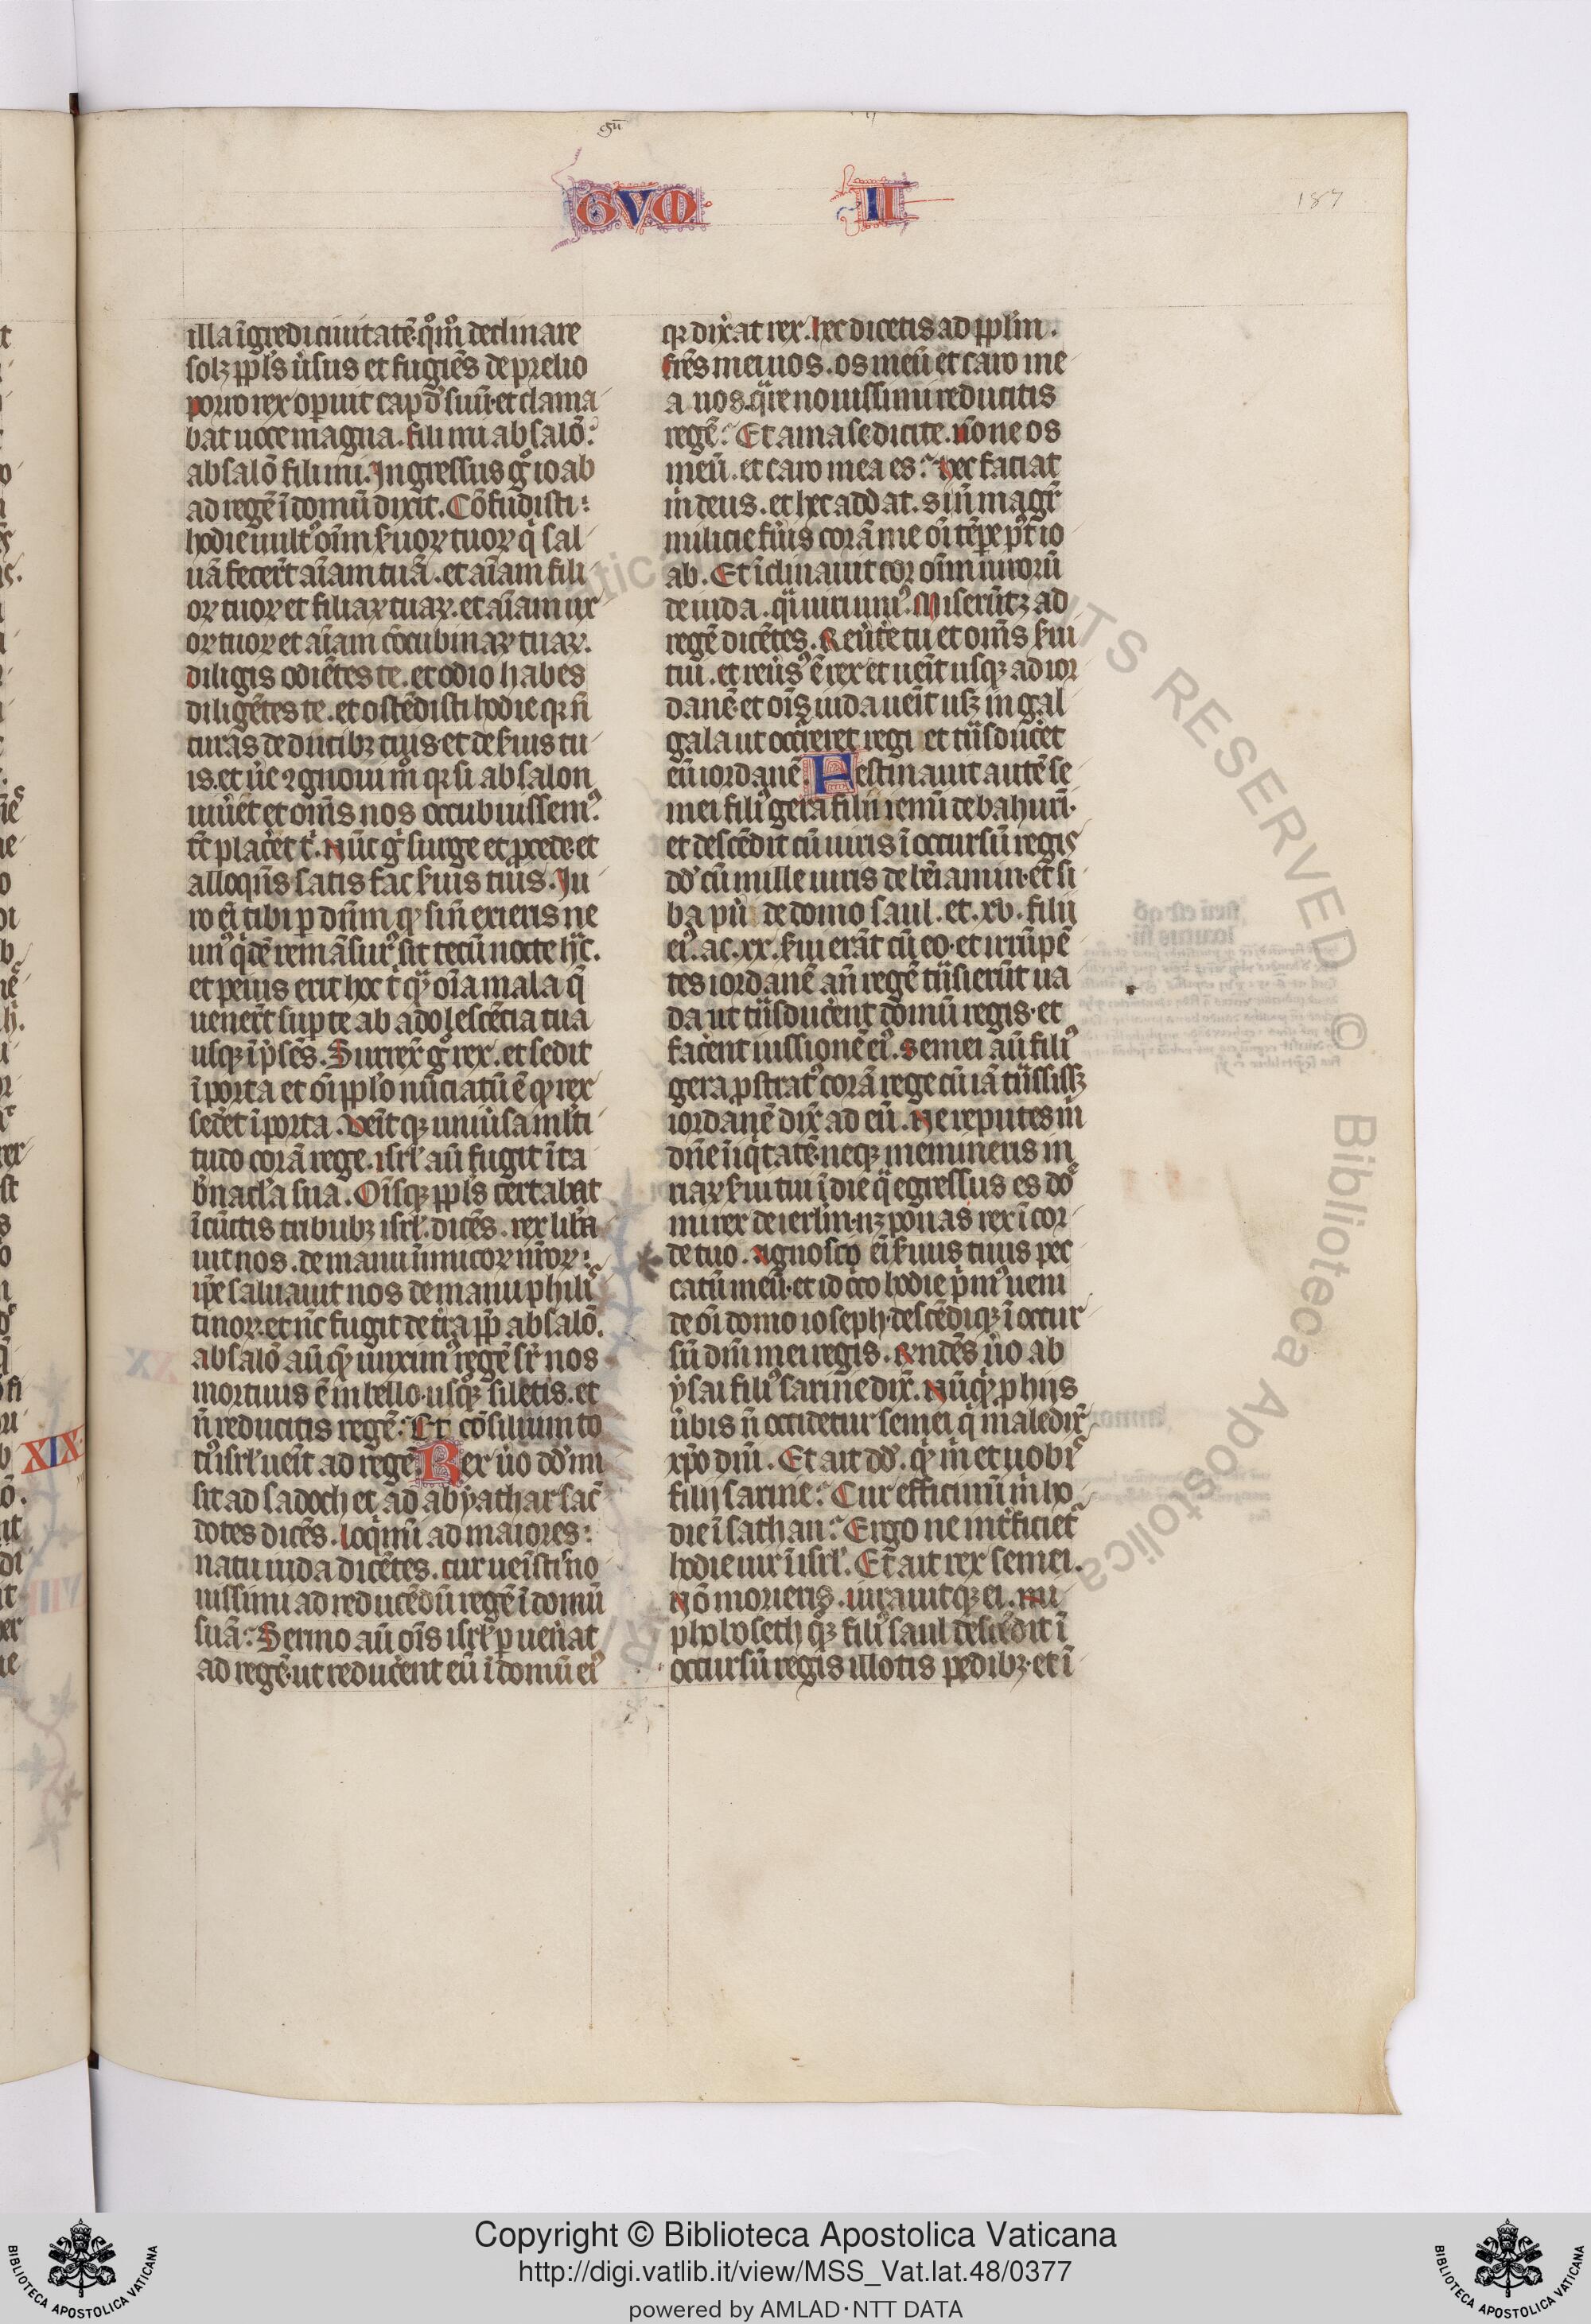 gū
GVM II
187
illa īgredi ciuitatē. qͦm̊ declinare
solꝫ pp̄ls ū̇sus et fugiēs de prelio
porro rex oꝑuit capđ suū. et clama
bat uoce magna. fili mi absalō.
absalō fili mi. Ingressus gͦ ioab
ad regē ī domū dixit. Cōfudisti
hodie uultꝰ oīm ẜuoꝝ tuoꝝ q̇ sal
uā fecer̄t aīam tuā. et aīam fili
oꝝ tuoꝝ et filiaꝝ tuaꝝ. et aīam ux
oꝝ tuoꝝ et aīam cōcubinaꝝ tuaꝝ.
diligis odiētes te. et odio habes
diligētes te. et ostēdisti hodie qꝛ n̄
curas de ducibꝫ tuis. et de ẜuis tu
is. et ūe ꝯgnoui m̊ qꝛ si absalon
uiuēt et om̄s nos occubuissemꝰ
tc̄ placēt t̄. Nūc gͦ surge et ꝓcede. et
alloqn̄s satis fac ẜuis tuis. Iu
ro eī tibi ꝑ dn̄m qꝫ si n̄ exieris ne
unꝰ q̇dē remāsurꝰ sit tecū nocte hc̄.
et peius erit hoc t̄ qꝫ oīa mala q̄
uener̄t suꝑ te ab adolescētia tua
usqꝫ ī p̄sēs. Surrex̄ gͦ rex. et sedit
ī porta et oī pp̄lo nūciatū ē qꝫ rex
sedēt ī porta. Veīt qꝫ uniūsa ml̄ti
tudo corā rege. isrl̄ aū fugit ī ta
b̄nacl̄a sua. Oīsqꝫ pp̄ls certabat
ī cūctis tribubꝫ isrl̄. dicēs. rex lib̄a
uit nos. de manu inimicoꝝ nr̄oꝝ
ip̄e saluauit nos de manu philiꝰ
tinoꝝ. et nc̄ fugit de tr̄a ꝓp̄ absalō.
absalō aū qꝫ unximꝰ regē sr̄ nos
mortuus ē in bello. usq̄qꝫ siletis. et
n̄ reducitis regē. Et cōsilium to
tiꝰ isrl̄ ueīt ad regē. Rex ūo dđ mi
sit ad sadoch et ad abyathar sac̄
dotes dicēs. loqm̄ ad maiores
natu iuda dicētes. cur ueīsti͛s no
uissimi ad reducēdū regē ī domū
suā. Sermo aū oīs isrl̄ ꝑuenāt
ad regē. ut reducēnt eū ī domū eiꝰ
qꝛ dix̄at rex. hec dicetis ad pp̄lm.
fr̄es mei uos. os meū et caro me
a uos. q̄re nouissimi reducitis
regē. Et amase dicite. nōne os
meū. et caro mea es. hec faciat
m̊ deus. et hec addat. si n̄ magr̄
milicie fūis corā me oī tēꝑe p̄t io
ab. Et īclinauit cor oīm uiroꝝ
de iuda. q̄i uiri uniꝰ. Miserūtqꝫ ad
regē dicētes. Reūte tu et om̄s ẜui
tui. et reūsꝰ ē rex et ueīt usqꝫ ad ior
danē. et oīs iuda ueīt usqꝫ in gal
gala ut occ̄reret regi et t̄nsducēt
eū iordanē. Hestinauit autē se
mei filiꝰ gera filii iemī de bahurī.
et descēdit cū uiris ī occursū regis
dđ cū mille uiris de bēiamin. et si
ba pū de domo saul. et. xv. filii
eiꝰ. ac. xx. ẜui erāt cū eo. et irrūpē
tes iordanē an̄ regē t̄nsierūt ua
da ut t̄nsducēnt domū regis. et
facēnt iussionē eiꝰ. Semei aū filiꝰ
gera ꝓstratꝰ corā rege cū iā t̄nsissꝫ
iordanē dix̄ ad eū. Ne reputes m̊
dn̄e īiq̇tatē. neqꝫ memineris in
riaꝝ ẜui tui ī die q̄ egressus es dn̄e
mi rex de ierlm̄. nꝫ ponas rex ī cor
de tuo. agnosco eī ẜuus tuus pec
catū meū. et idc̄co hodie p̄mꝰ ueni
de oī domo ioseph. descēdiqꝫ ī occur
sū dn̄i mei regis. Rn̄dēs ūo ab
ysai filiꝰ saruie dix̄. Nūqꝫ ꝓ hijs
ūbis n̄ occidetur semei q̇ maledix̄
xp̄o dn̄i. Et ait dđ. qꝫ m̊ et uobiꝰ
filij saruie. Cur efficimī m̊ ho
die ī sathan. Ergo ne īt̄ficiet̄
hodie uir ī isrl̄. Et ait rex semei.
Nō morieris. iurauitqꝫ ei. Mi
phiboseth qꝫ filiꝰ saul descēdit ī
occursū regis illotis pedibꝫ. et ī
XIX
Copyright © Biblioteca Apostolica Vaticana
http://digi.vatlib.it/view/MSS_Vat.lat.48/0377
powered by AMLAD·NTT DATA
BIBLIOTECA APOSTOLICA VATICANA
BIBLIOTECA APOSTOLICA VATICANA